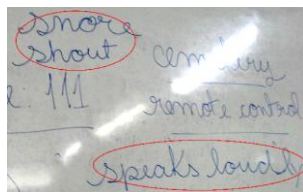 snore
shout
cemetery
111
remote control
speaks loudly